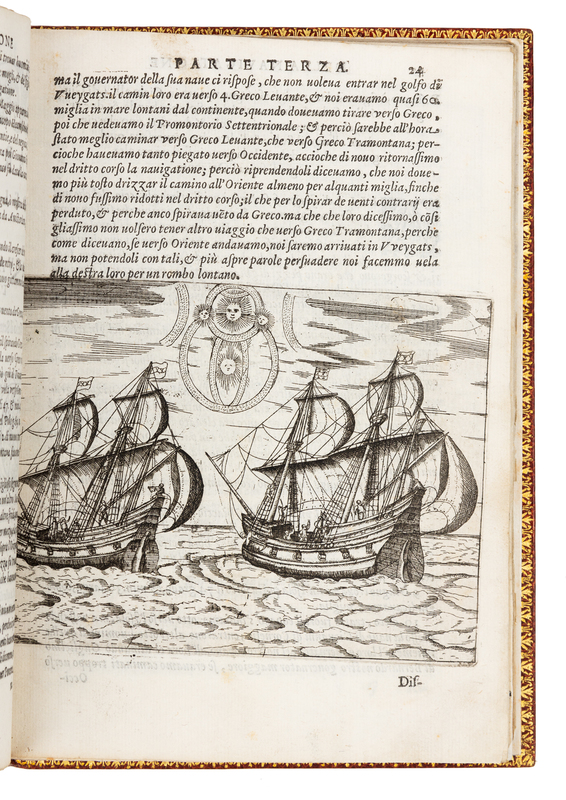 PARTE TERZA.
24
ma il gouernator della sua naue ci rispose, che non uoleua entrar nel golfo di
Vueygats. il camin loro era uerso 4. Greco Leuante, & noi erauamo quasi 60.
miglia in mare lontani dal continente, quando doueuamo tirare verso Greco,
poi che uedeuamo il Promontorio Settentrionale; & perciò sarebbe all'hora
stato meglio caminar verso Greco Leuante, che verso Greco Tramontana; per-
cioche haueuamo tanto piegato uerso Occidente, accioche di nouo ritornassimo
nel dritto corso la nauigatione; perciò riprendendoli diceuamo, che noi doue-
mo più tosto drizzar il camino all'Oriente almeno per alquanti miglia, finche
di nouo fussimo ridotti nel dritto corso; il che per lo spirar de uenti contrarij era
perduto, & perche anco spiraua uẽto da Greco. ma che che loro dicessimo, ò cõsi
gliassimo non uolsero tener altro uiaggio che uerso Greco Tramontana, perche
come diceuano, se uerso Oriente andauamo, noi saremo arriuati in Vveygats,
ma non potendoli con tali, & più aspre parole persuadere noi facemmo uela
alla destra loro per un rombo lontano.
Dis-